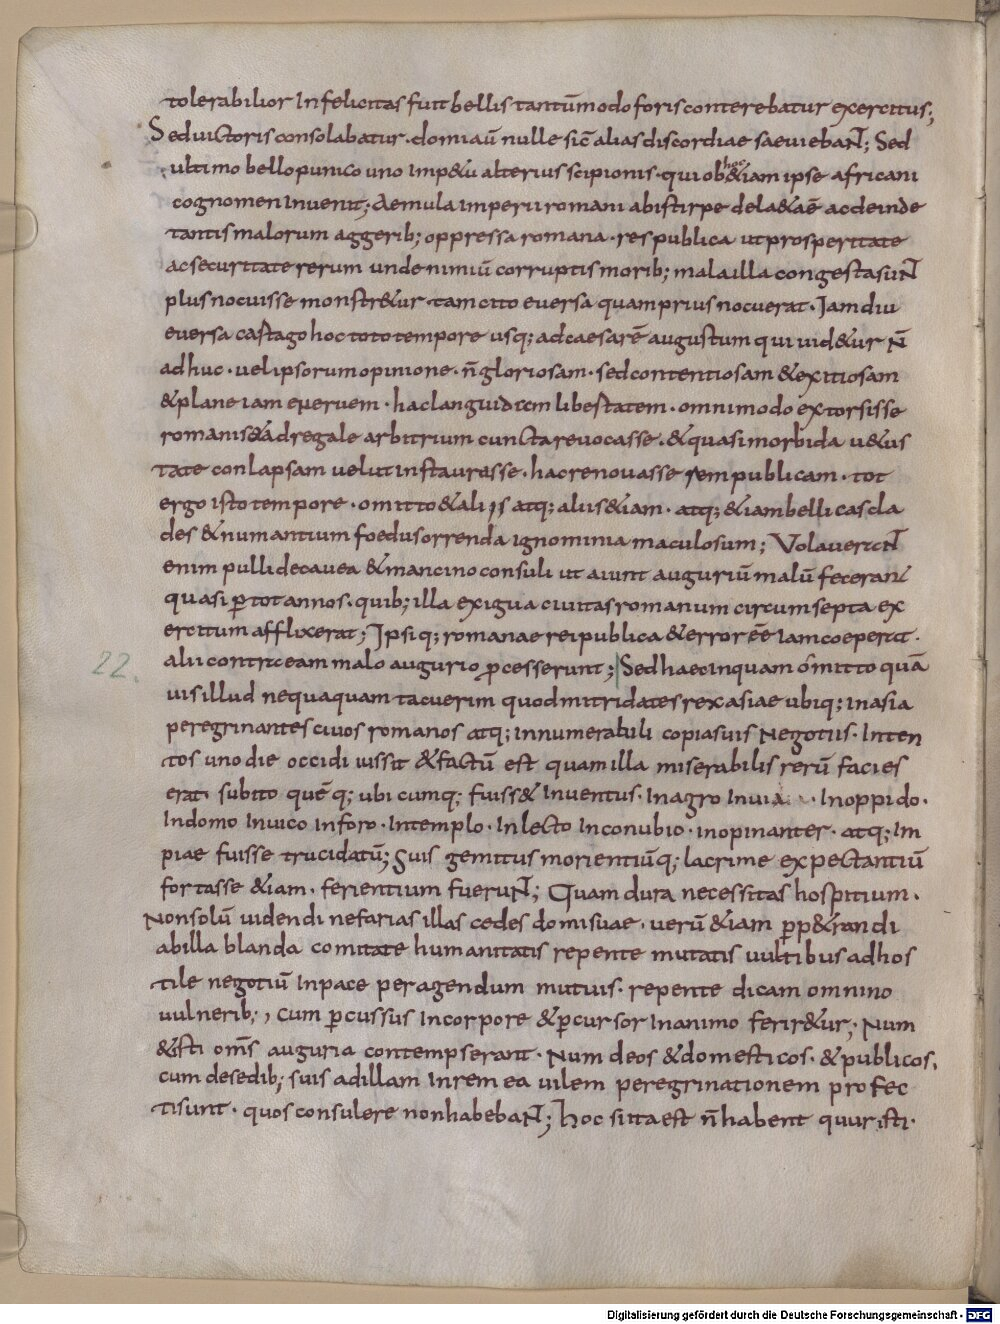 tolerabilior Infelicitas fuit bellis tantūmodo foris conterebatur exercitus;
Sed uictoris consolabatur · domi aū nulle sic̄ alias discordiae saeuiebaNT; Sed
ultimo bello punico uno Imp&u alterius scipionis · qui ob hoc &iam ipse africani
cognomen Inuenit; Aemula imperii romani ab istirpe dela&aē ac deinde
tantis malorum aggerib; oppressa romana · res publica ut prosperitate
ac securitate rerum unde nimiū corruptis morib; mala illa congesta suNT
plus nocuisse monstr&ur tam cito euersa quam prius nocuerat · Iam diu
euersa castago hoc toto tempore usq; ad caesarē augustum qui uid&ur N̄
adhuc · uel ipsorum opinione · n̄ gloriosam · sed contentiosam & exitiosam
& plane iam eneruem · hac languidam libestatem · omnimodo extorsisse
romanis & ad regale arbitrium cuncta reuocasse · & quasi morbida u&us
tate conlapsam uelut instaurasse · hac renouasse rem publicam · tot
ergo isto tempore · omitto & aliis atq; aliis &iam · atq; &iam bellicas cla
des & numantium foedus orrenda ignominia maculosum; VolauerūNT
enim pulli de cauea & mancino consuli ut aiunt auguriū malū feceraNT
quasi p̄ tot annos · quib; illa exigua ciuitas romanum circumsepta ex
ercitum afflixerat; Ipsiq; romanae rei publica & error eē Iam coeperat ·
alii contrceam malo augurio p̄cesserunt; Sed haec inquam omitto quā
22.
uis illud nequaquam tacuerim quod mitridates rex asiae ubiq; in asia
peregrinantes ciuos romanos atq; innumerabili copia suis Negotiis · Inten
tos uno die occidi iussit & factū est quam illa miserabilis rerū facies
erat subito quēq; ubicumq; fuiss& Inuentus · In agro In uia · In oppido ·
In domo In uico In foro · In templo · In lecto In conubio · inopinanter · atq; Im
piae fuisse trucidatū; Guis gemitus morientiūq; lacrime expectantiū
fortasse &iam · ferientium fueruNT; Quam dura necessitas hospitium ·
Non solū uidendi nefarias illas cedes domi suae · uerū &iam p̄p&randi
ab illa blanda comitate humanitatis repente mutatis uultibus ad hos
tile negotiū In pace peragendum mutuis · repente dicam omnino
uulnerib; , cum p̄cussus In corpore & p̄cursor In animo ferir&ur; Num
& isti om̄s auguria contempserant · Num deos & domesticos · & publicos,
cum de sedib; suis ad illam In rem ea uilem peregrinationem profec
ti sunt · quos consulere non habebaNT; Hoc si ita est n̄ habent quur isti ·
Digitalisierung gefördert durch die Deutsche Forschungsgemeinschaft - DFG